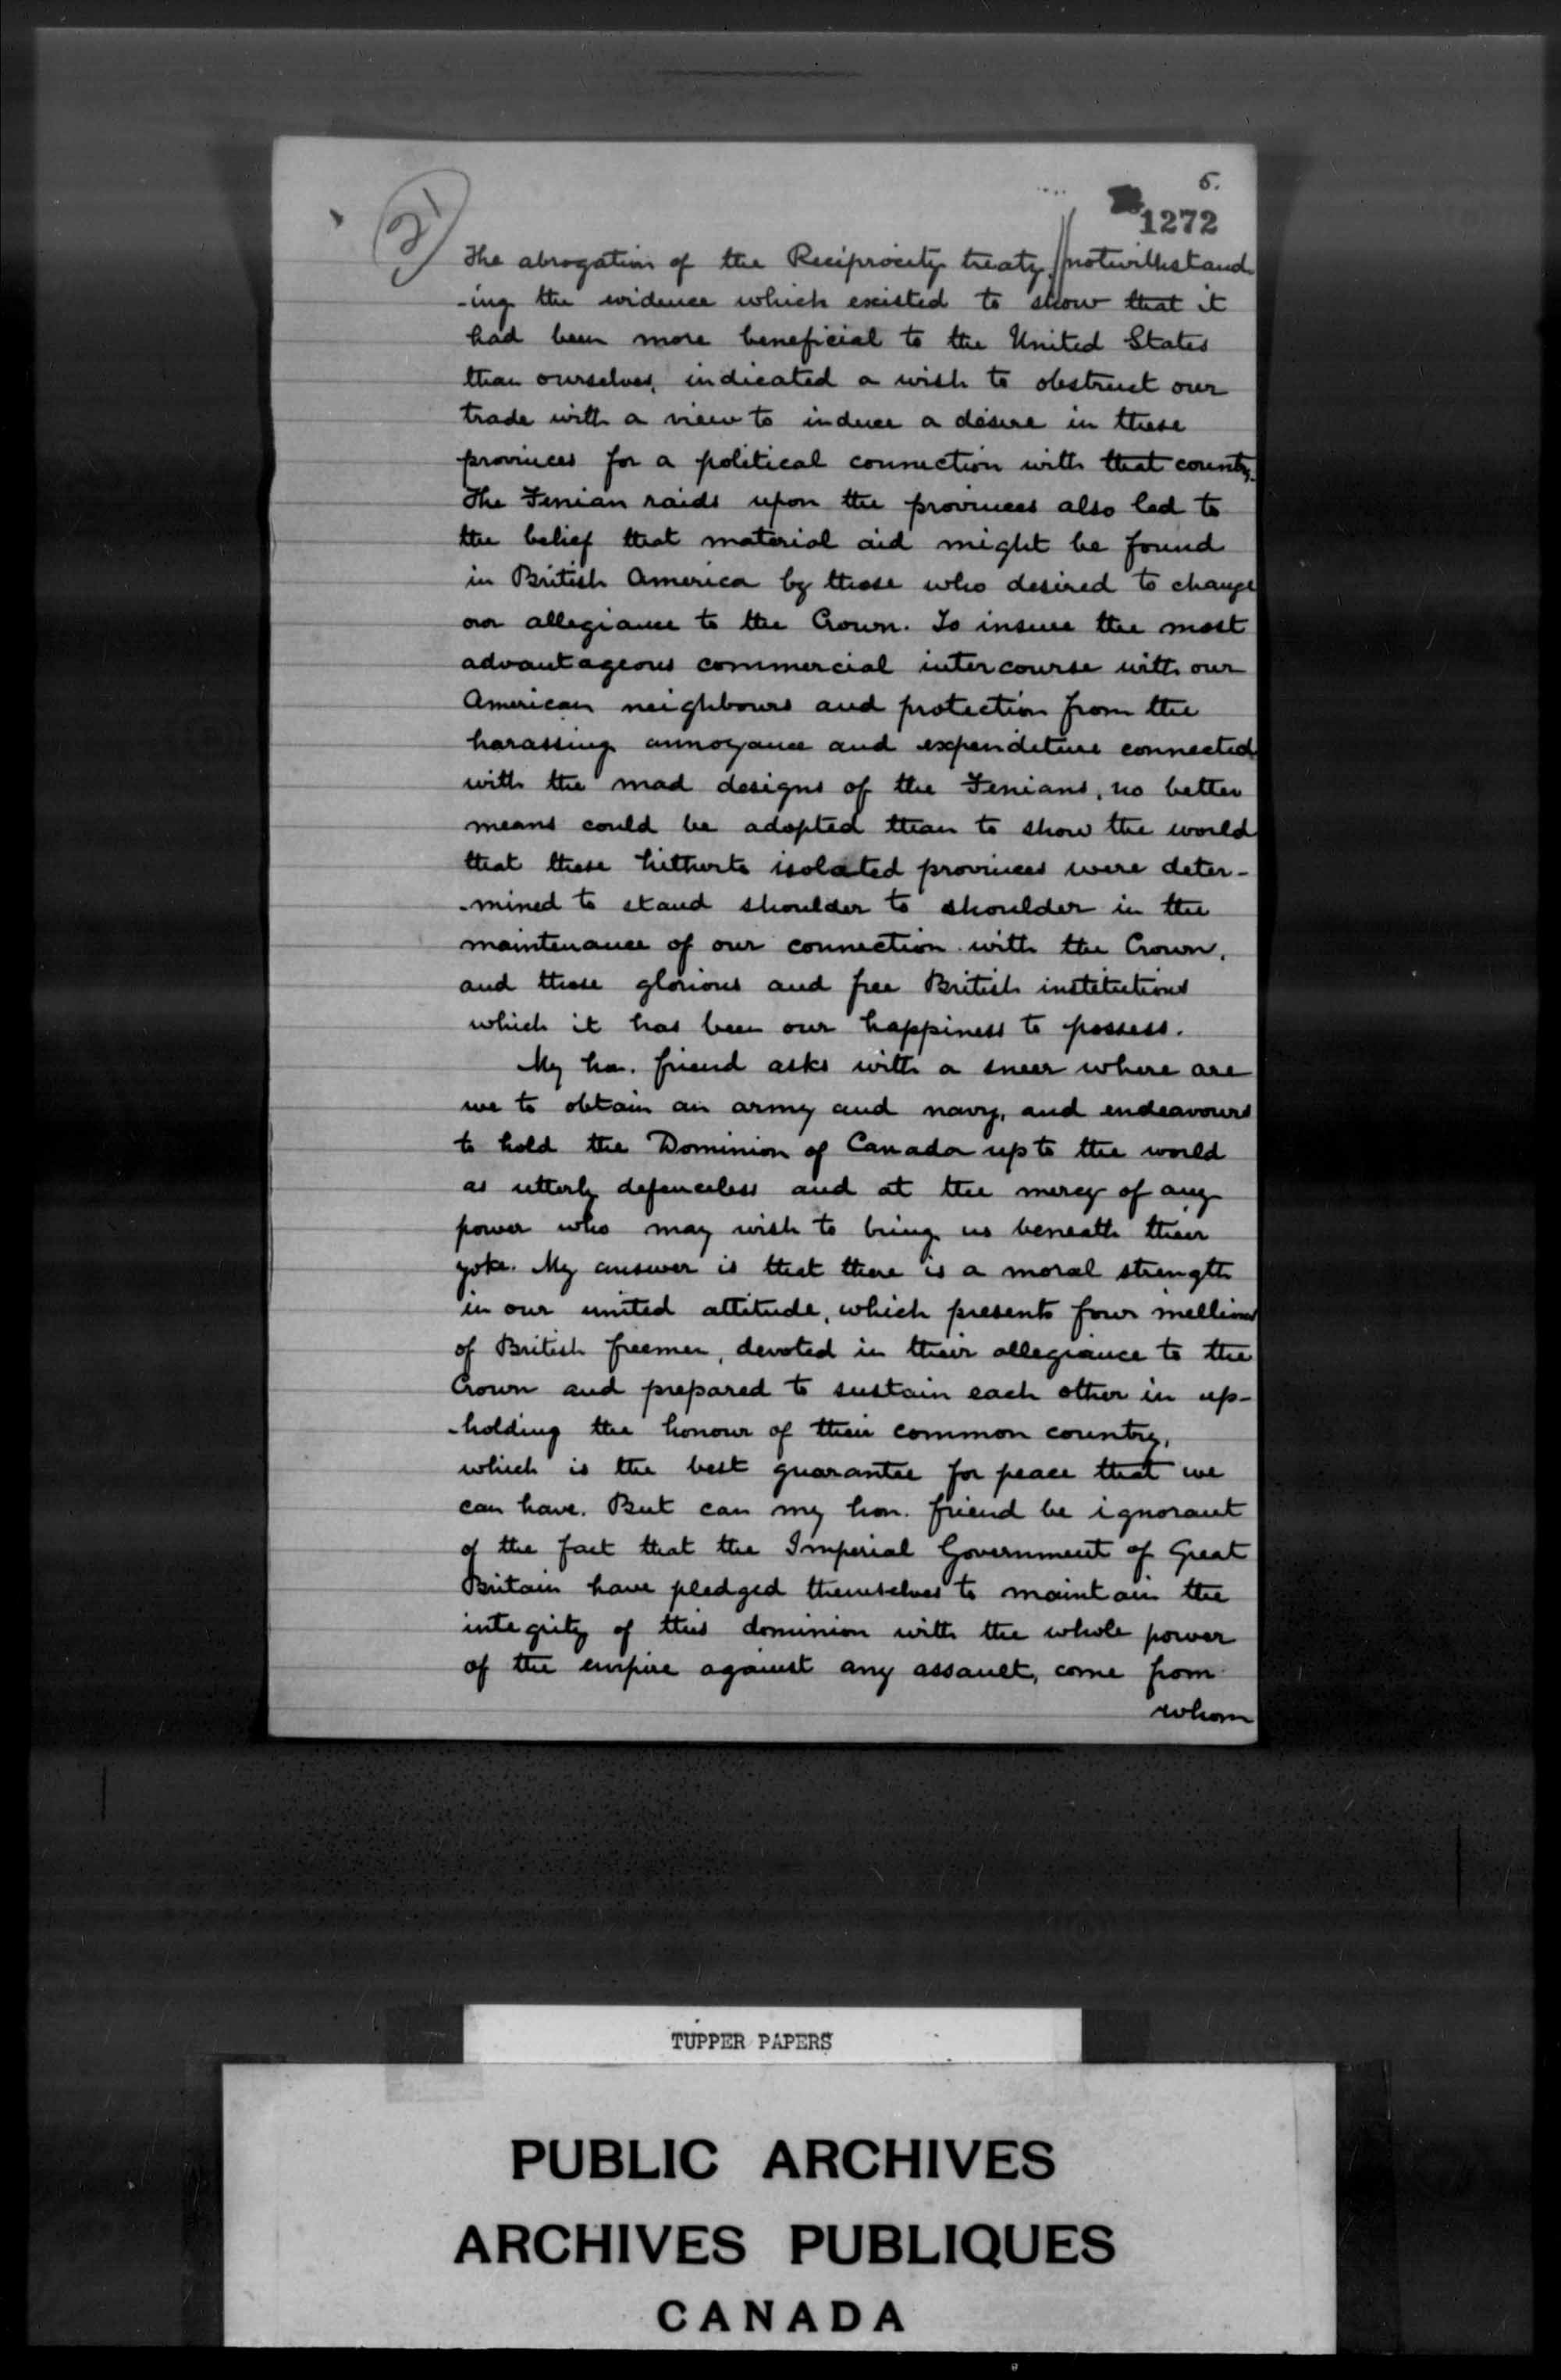 5.
1272
2
The abrogation of the Reciprocity treaty, notwithstand-
-ing the evidence which existed to show that it
had been more beneficial to the United States
than ourselves, indicated a wish to obstruct our
trade with a view to induce a desire in these
provinces for a political connection with that country.
The Fenian raids upon the provinces also led to
the belief that material aid might be found
in British America by those who desired to change
our allegiance to the Crown. To insure the most
advantageous commercial intercourse with our
American neighbours and protection from the
harassing annoyance and expenditure connected
with the mad designs of the Fenians, no better
means could be adopted than to show the world
that these hitherto isolated provinces were deter-
-mined to stand shoulder to shoulder in the
maintenance of our connection with the Crown,
and those glorious and free British institutions
which it has been our happiness to possess.
My hon. friend asks with a sneer where are
we to obtain an army and navy, and endeavours
to hold the Dominion of Canada up to the world
as utterly defenceless and at the mercy of any
power who may wish to bring us beneath their
yoke. My answer is that there is a moral strength
in our united attitude, which presents four millions
of British freemen, devoted in their allegiance to the
Crown and prepared to sustain each other in up-
-holding the honour of their common country,
which is the best guarantee for peace that we
can have. But can my hon. friend be ignorant
of the fact that the Imperial Government of Great
Britain have pledged themselves to maintain the
integrity of this dominion with the whole power
of the empire against any assault, come from
whom
TUPPER PAPERS
PUBLIC ARCHIVES
ARCHIVES PUBLIQUES
CANADA